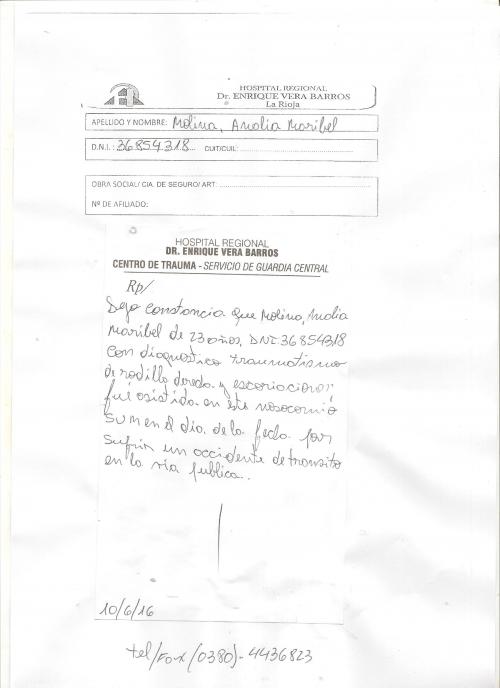 HOSPITAL REGIONAL
Dr. ENRIQUE VERA BARROS
La Rioja
APELLIDO Y NOMBRE: Molina, Analia Maribel
D.N.I.: 36854318 CUIT/CUIL:
OBRA SOCIAL/ CIA. DE SEGURO/ ART:
Nº DE AFILIADO:
HOSPITAL REGIONAL
DR. ENRIQUE VERA BARROS
CENTRO DE TRAUMA - SERVICIO DE GUARDIA CENTRAL
Rp/
Dejo constancia que Molina, Analia
Maribel de 23 años, DNI: 36854318
con diagnostico traumatismo
de rodilla derecha y escoriaciones
fué asistida en este nosocomio
en el dia de la fecha por
sufrir un accidente de transito
en la via publica.
10/6/16
tel/Fax (0380)- 4436823